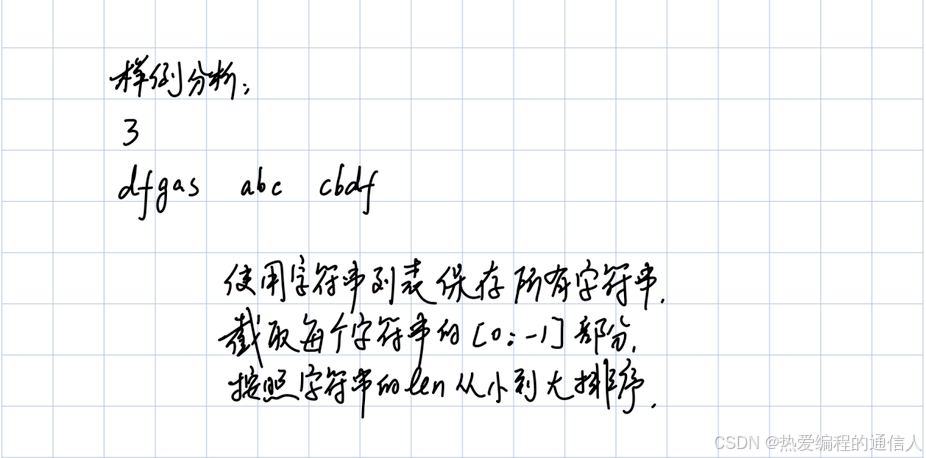 样例分析:
3
dfgas abc cbdf
使用字符串列表保存所有字符串.
截取每个字符串的[0:-1]部分.
按照字符串的len从小到大排序.
CSDN @热爱编程的通信人